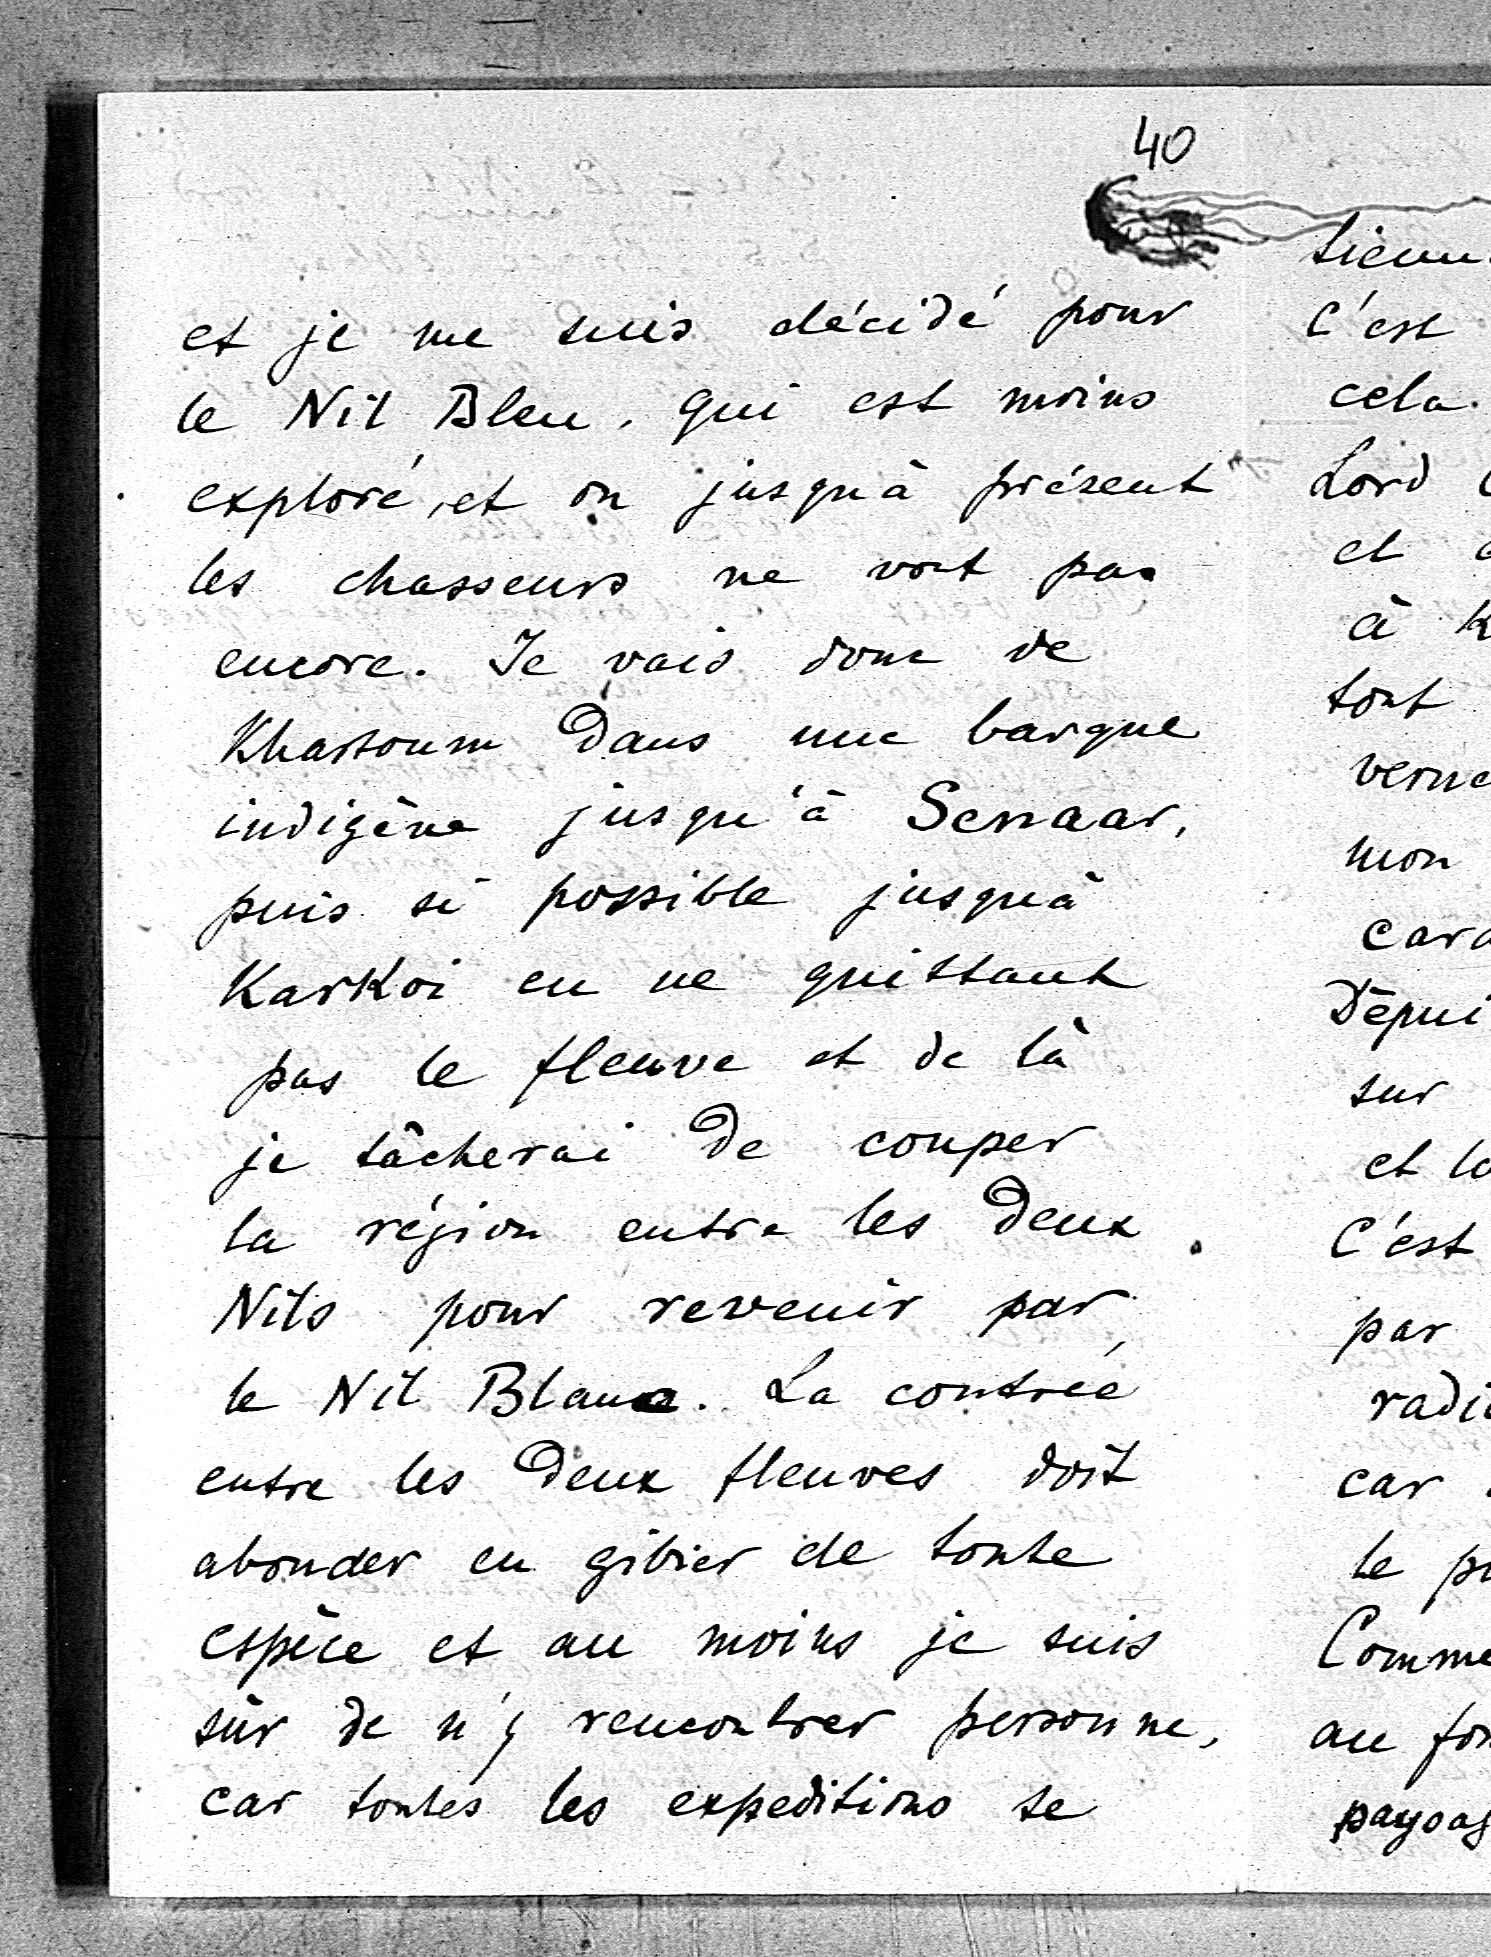 40
et je me suis décidé pour
le Nil Bleu, qui est moins
exploré, et ou jusqu'à présent
les chasseurs ne vont pas
encore. Je vais donc de
Khartoum dans une barque
indigène jusqu'à Senaar,
puis si possible jusquà
Karkoi en ne quittant
pas le fleuve et de là
je tâcherai de couper
la région entre les deux
Nils pour revenir par
le Nil Blanc. La contrée
entre les deux fleuves doit
abonder en gibier de toute
espèce et au moins je suis
sûr de n'y rencontrer personne,
car toutes les expeditions se
c'est
cela.
Lord
et
à
tout
mon
sur
et
c'est
par
car
le
au